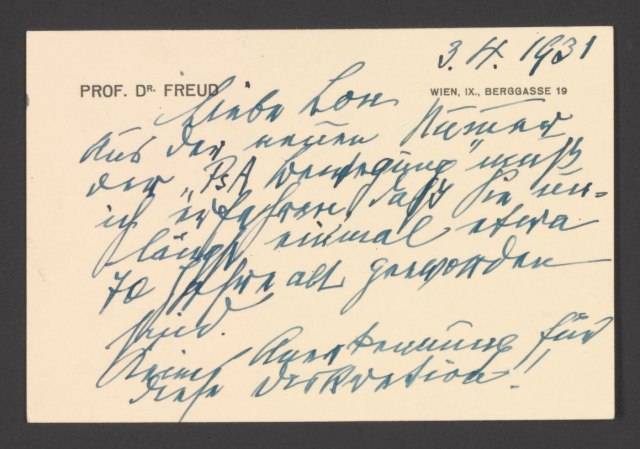 3.4.1931
PROF. DR. FREUD WIEN, IX., BERGGASSE 19
Liebe Lou
Aus der neuen Nummer
der „PsA Bewegung" muß
ich erfahren daß Sie un-
längst einmal etwa
70 Jahre alt geworden
sind.
Keine Anerkennung für
diese Diskretion!!